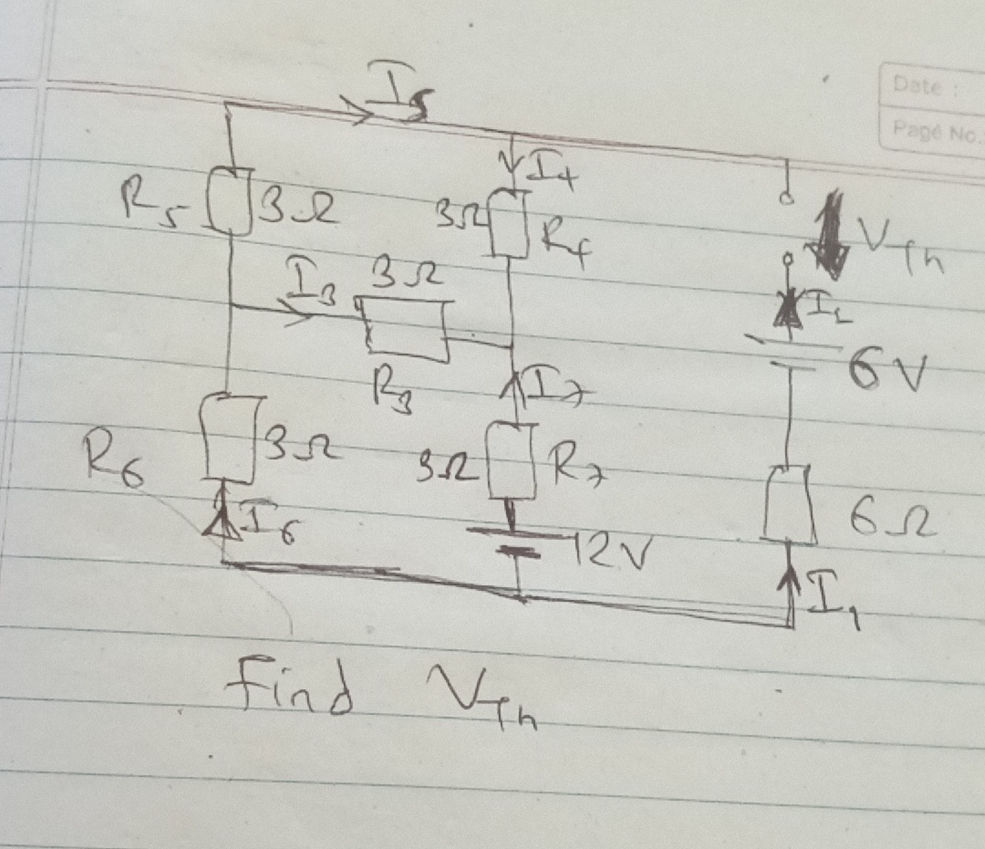 Date :
Page No.
I5
I4
R5 3Ω
3Ω R4
VTh
I3 3Ω
IL
6V
R3
I7
R6 3Ω
3Ω R7
6Ω
I6
12V
I1
Find VTh